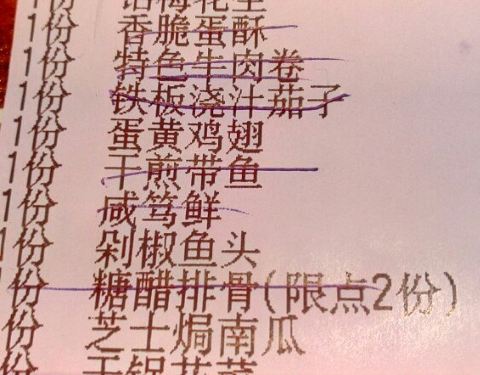 1份 香脆蛋酥
1份 特色牛肉卷
1份 铁板浇汁茄子
1份 蛋黄鸡翅
1份 干煎带鱼
1份 咸笃鲜
1份 剁椒鱼头
1份 糖醋排骨(限点2份)
份 芝士焗南瓜
份